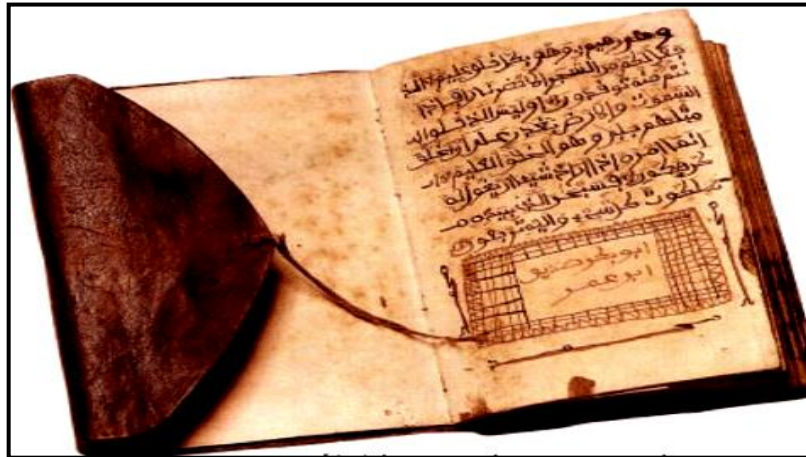 وهو بكل خلق عليم الذي
لكم من الشجر الاخضر نارا فاذا
انتم منه توقدون اوليس الذي خلق
السموت والارض بقدر على ان يخلق
مثلهم بلى وهو الخلق العليم
انما امره اذا اراد شيا ان يقول له
كن فيكون فسبحن الذي بيده
ملكوت كل شيء واليه ترجعون
ابو بكر صديق
ابو عمر